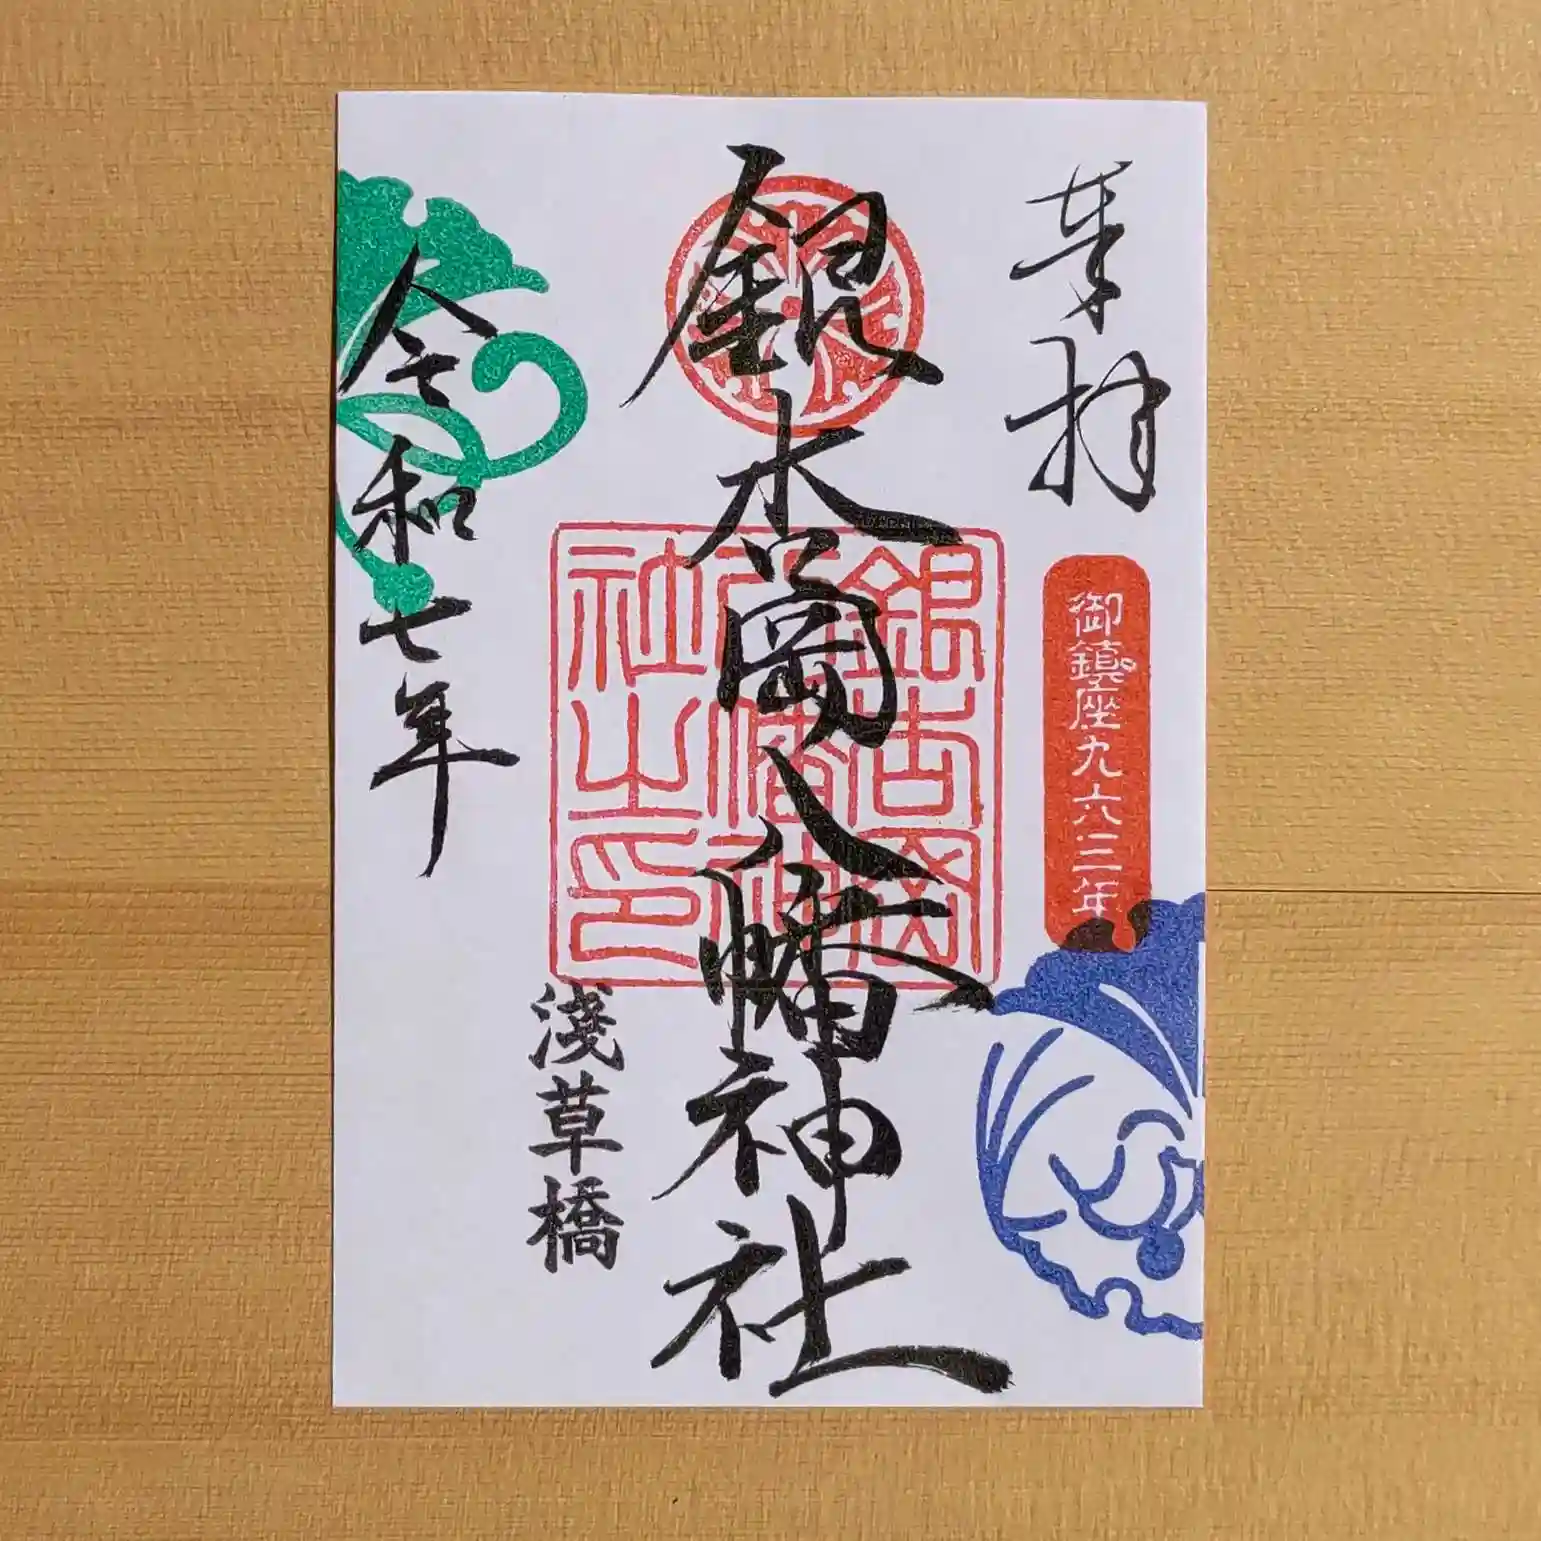 奉拝
御鎮座九六三年
銀杏岡八幡神社
銀杏岡
八幡神
社之印
浅草橋
令和七年